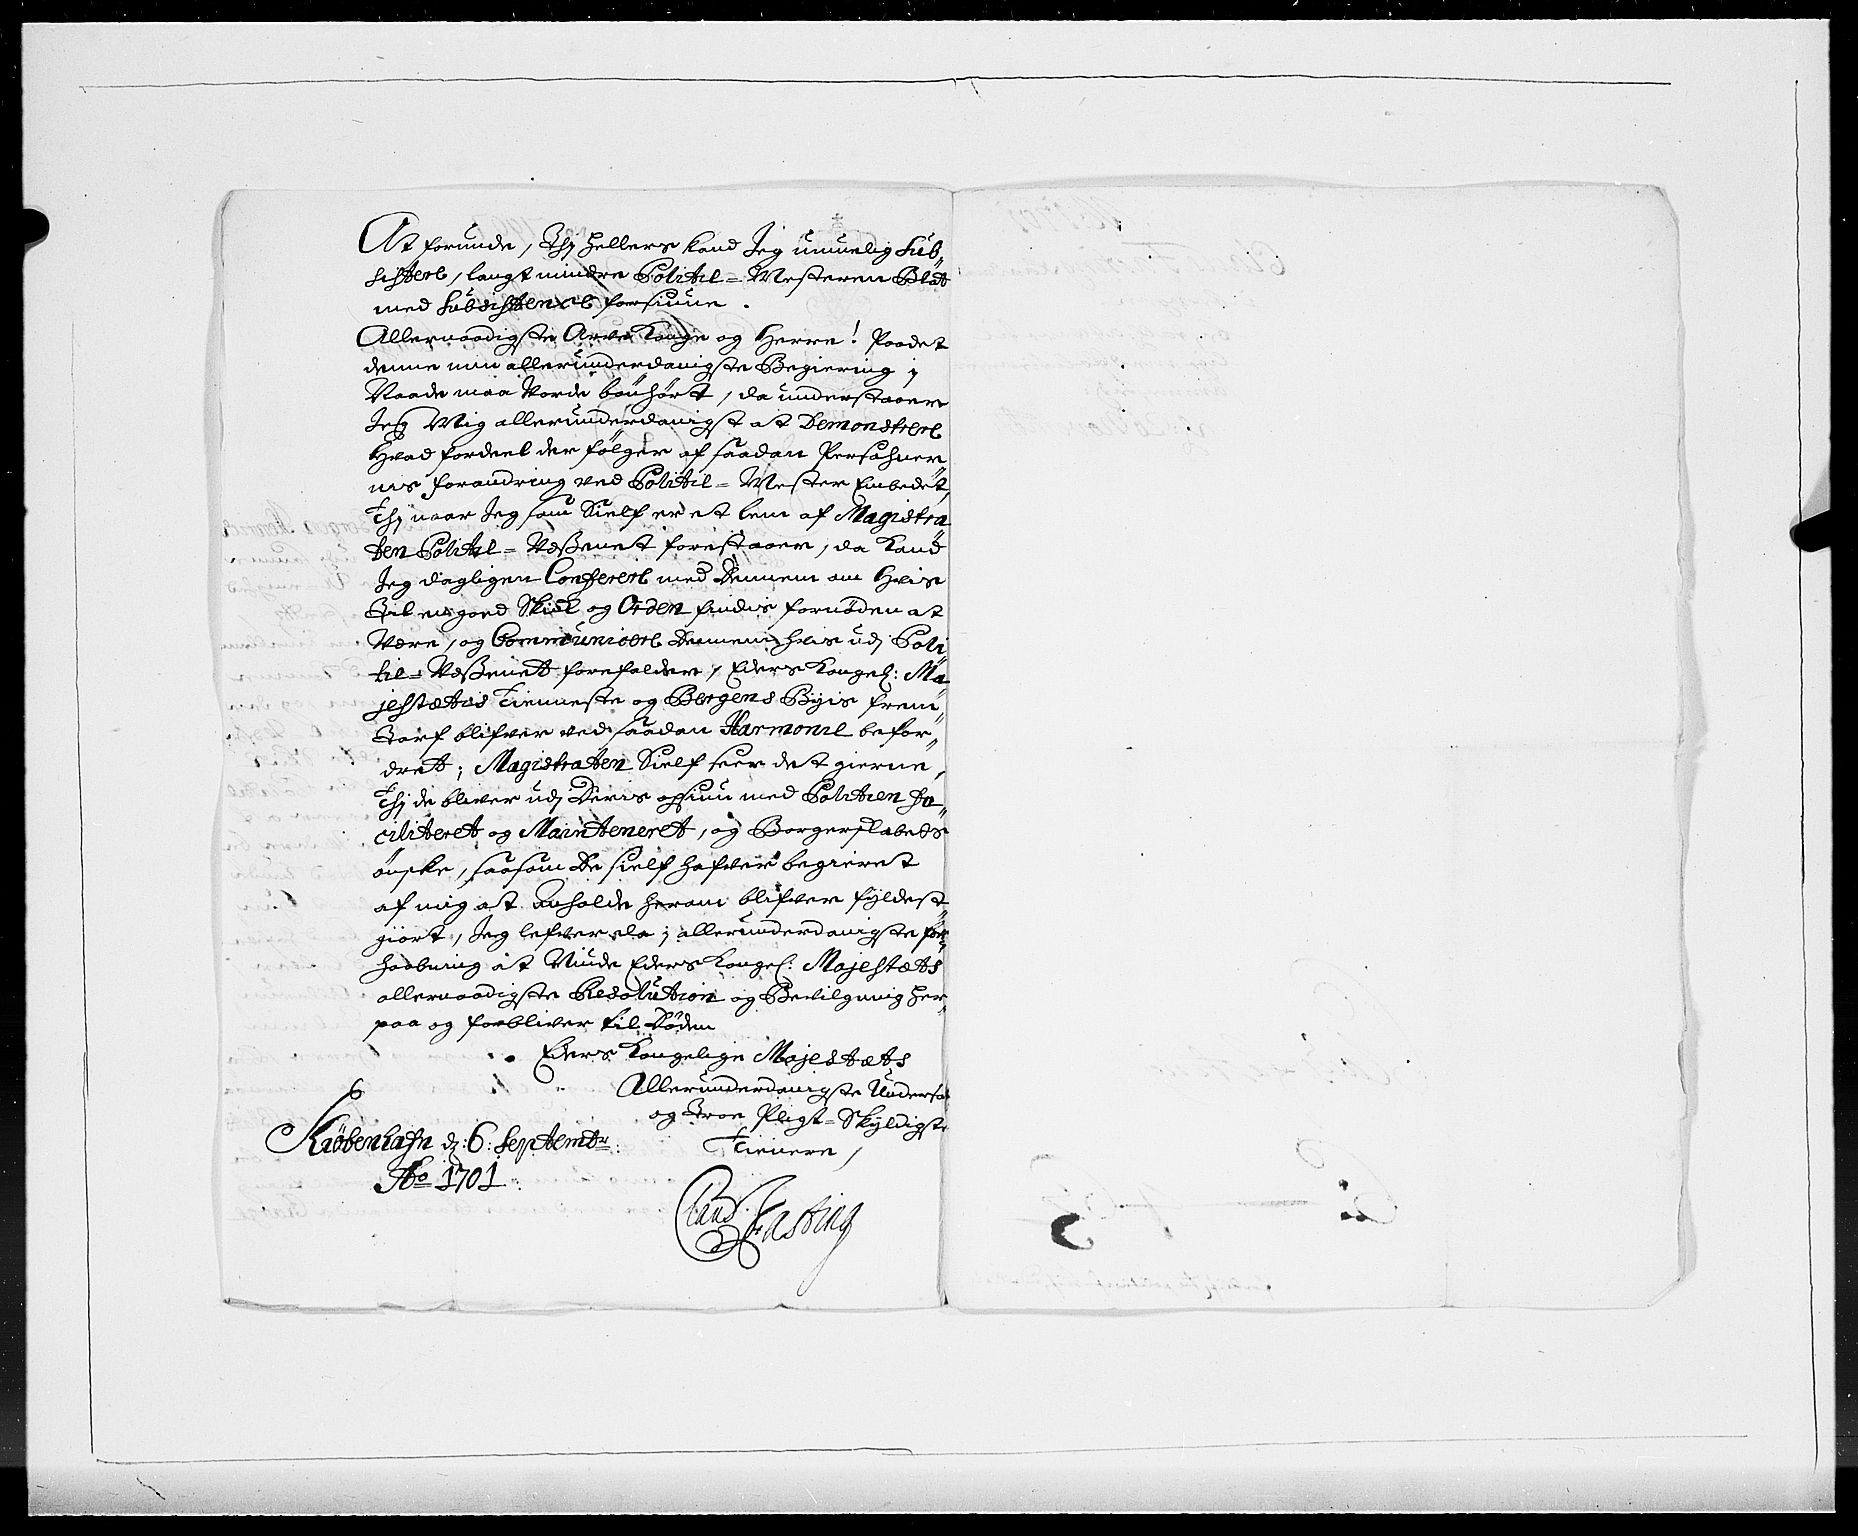 At forunde, Thj hellers kand Jeg umuelig Sub„
sistere, langt mindre Politie=Mesteren Blat
med Subsistence forsiune.
Allernaadigste Arve Konge og Herre! Paa det
denne min allerunderdanigste Begiering j
Naade maa Vorde bønhørt, da understaaer
Jeg Mig allerunderdanigst at Demonstrere
Hvad fordeel der følger af saadan Persohner„
nis forandring ved Politie=Mester Embedet,
Thj naar Jeg som Sielf er et lem af Magistra„
ten Politie=Væßenet forestaaer, da kand
Jeg dagligen Conferere med Dennem om Hvis
Til en goed Skick og Orden findis fornøden at
Være, og Communicere Dennem hvis udj Poli„
tie=Væßenet forefalder, Eders Kongel: Ma„
jestætes Tienneste og Bergens Byis frem„
Tarf blifver ved saadan Harmonie befor„
dret; Magistraten Sielf seer det gierne,
Thj de bliver udj Deris opsiun med Politien Fa„
ciliteret og Mainteneret, og Borgerskabeds
ønske, saasom De sielf hafver begieret
af mig at anholde herom blifver fyldest„
giort, Jeg lefver da j allerunderdanigste for„
haabning at Niude Eders Kongel: Majestæts
allernaadigste Resolution og Bevilgning her„
paa og forbliver til Døden
Eders Kongelige Majestæts
Allerunderdanigste Undersaat
og Troe Pligt=Skyldigste
Tienere,
Kiøbenhafn d: 6 Septembr:
Ao 1701.
Claud: Fasting